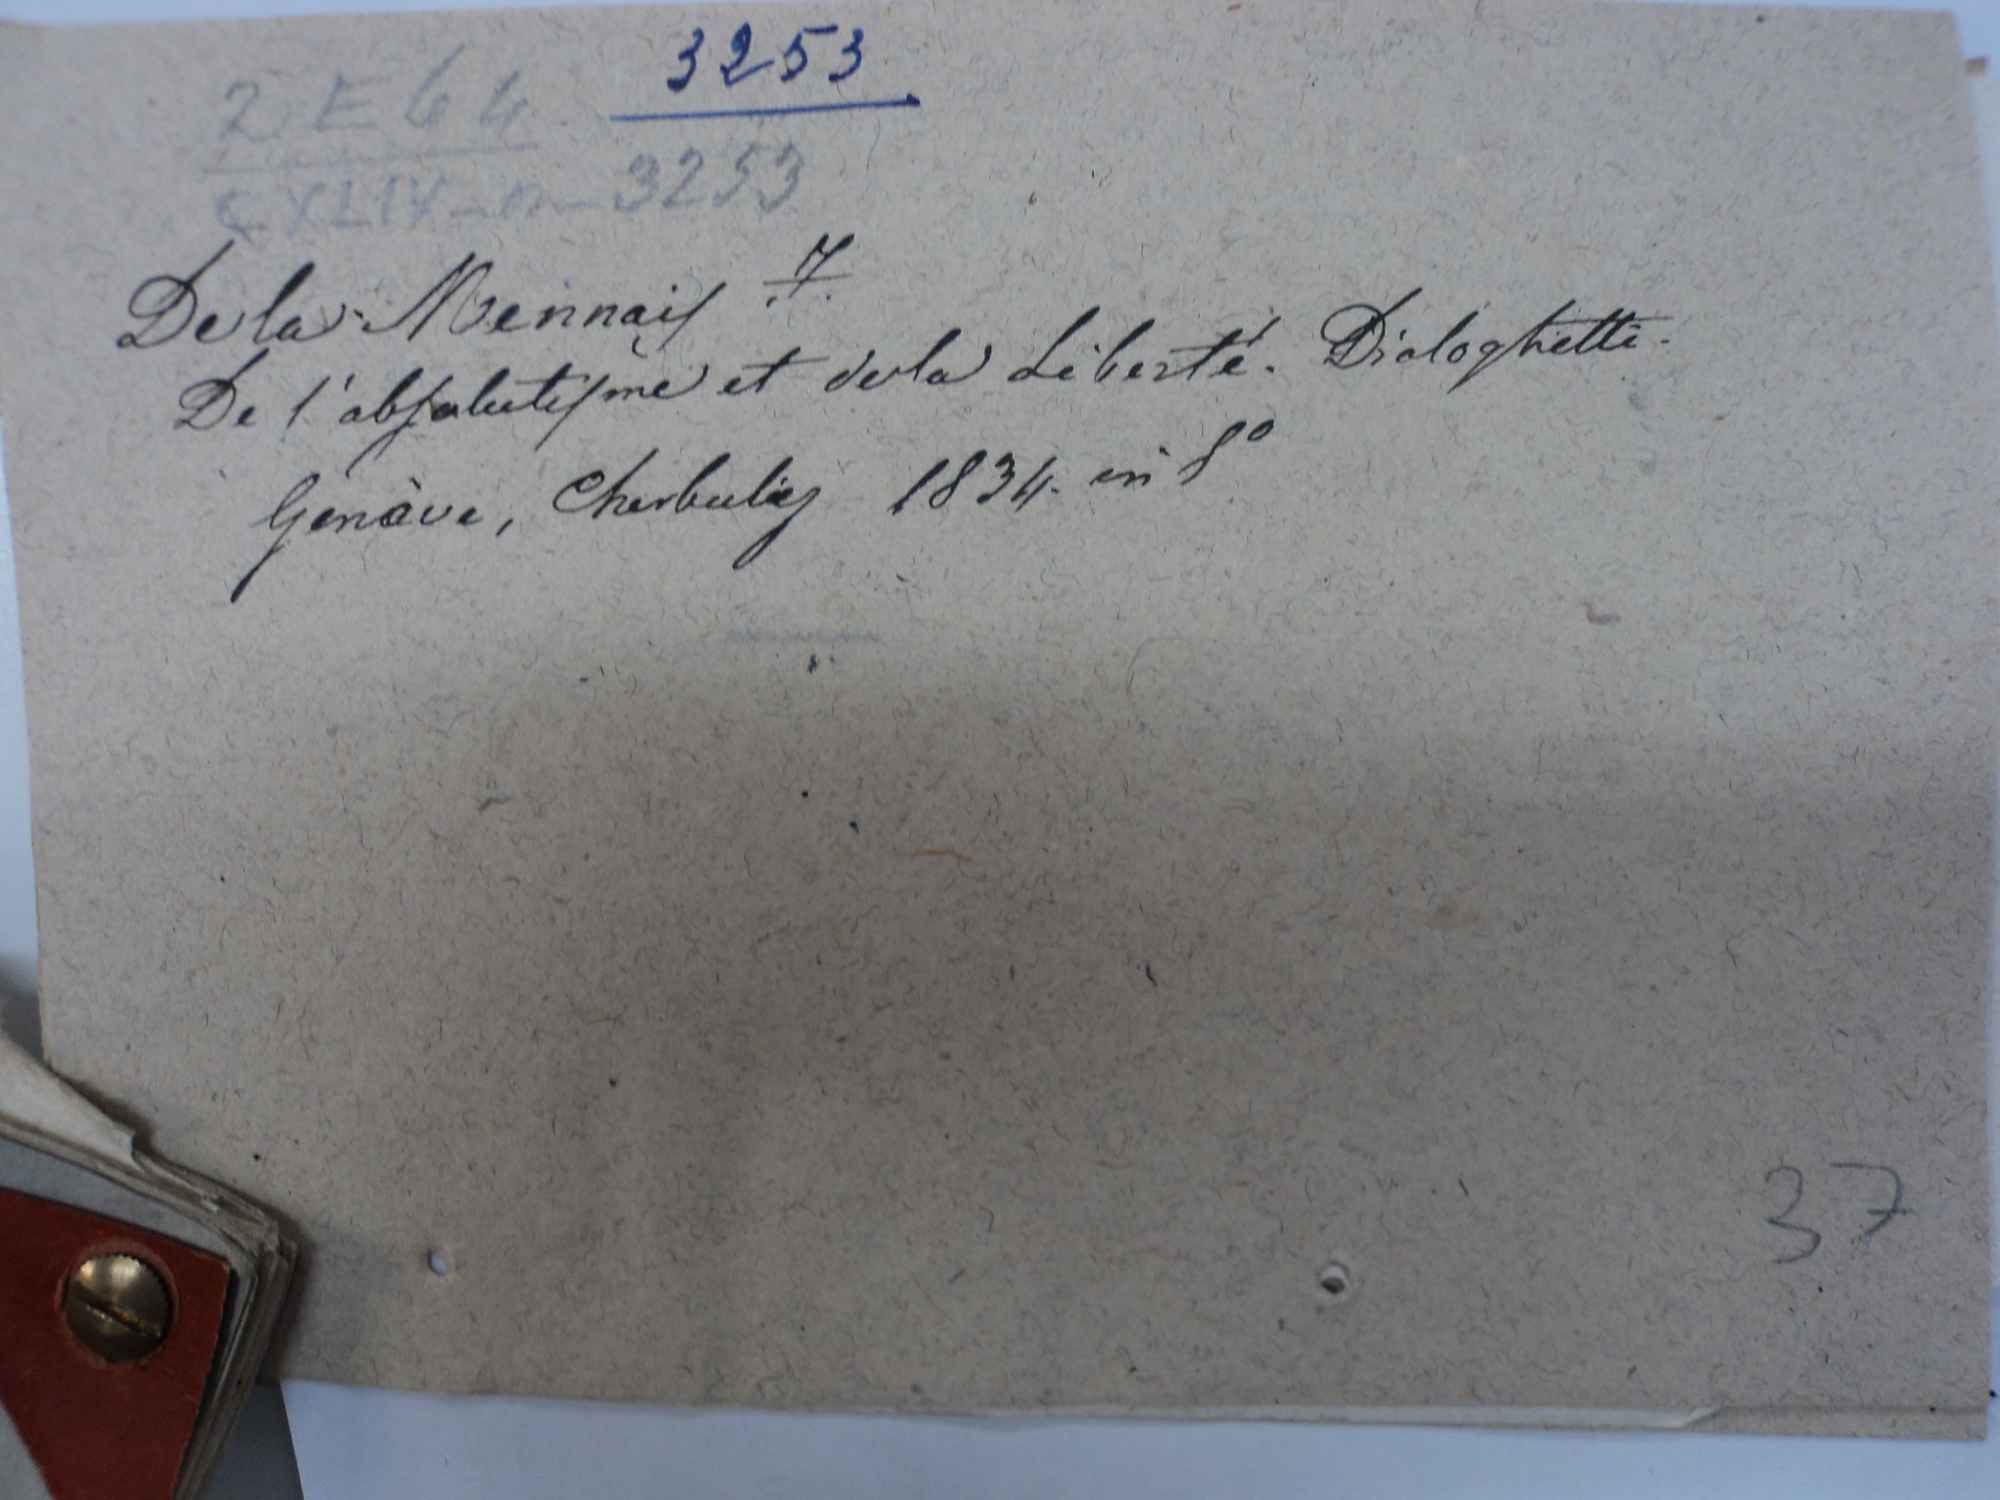 3253
2 E 64
CXLIV-n-3253
De la Mennais 7
De l'absolutisme et de la Liberté. Dialoghetti.
Genève, Cherbuliez 1834. in 8°
37